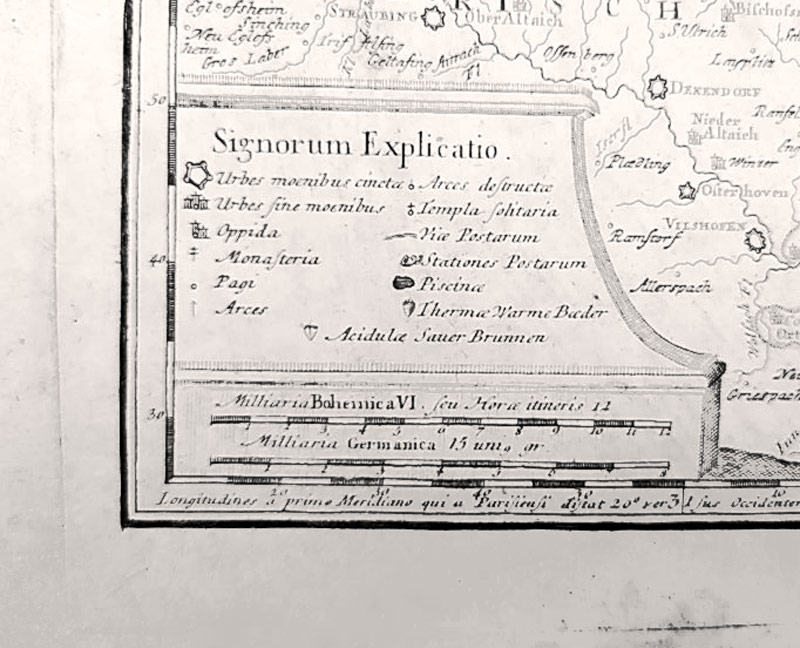 Egl ofsheim
Sinching
STRAUBING
Ober Altaich
R I S C H
Bischofs
Neu Eglofs
heim
Gros Laber
Irif
Geltafing
Aitrach
Fl
Ossenberg
S Ulrich
Langlitz
50
DEKENDORF
Nieder
Altaich
Iser fl
Plædling
Winzer
Osterhoven
VILSHOFEN
Ramstorf
Allerspach
Griespach
Signorum Explicatio.
Urbes moenibus cinctæ
Arces destructæ
Urbes sine moenibus
Templa solitaria
Oppida
Viæ Postarum
40
Monasteria
Stationes Postarum
Pagi
Piscinæ
Arces
Thermæ Warme Bæder
Acidulæ Sauer Brunnen
30
Milliaria Bohemica VI. seu Horæ itineris 12
1 2 3 4 5 6 7 8 9 10 11 12
Milliaria Germanica 15 uniꝯ gr.
1 2 3 4 5 8
Longitudines à primo Meridiano qui a Parisiensi distat 20° versus Occidentem
20 30 40 50 10